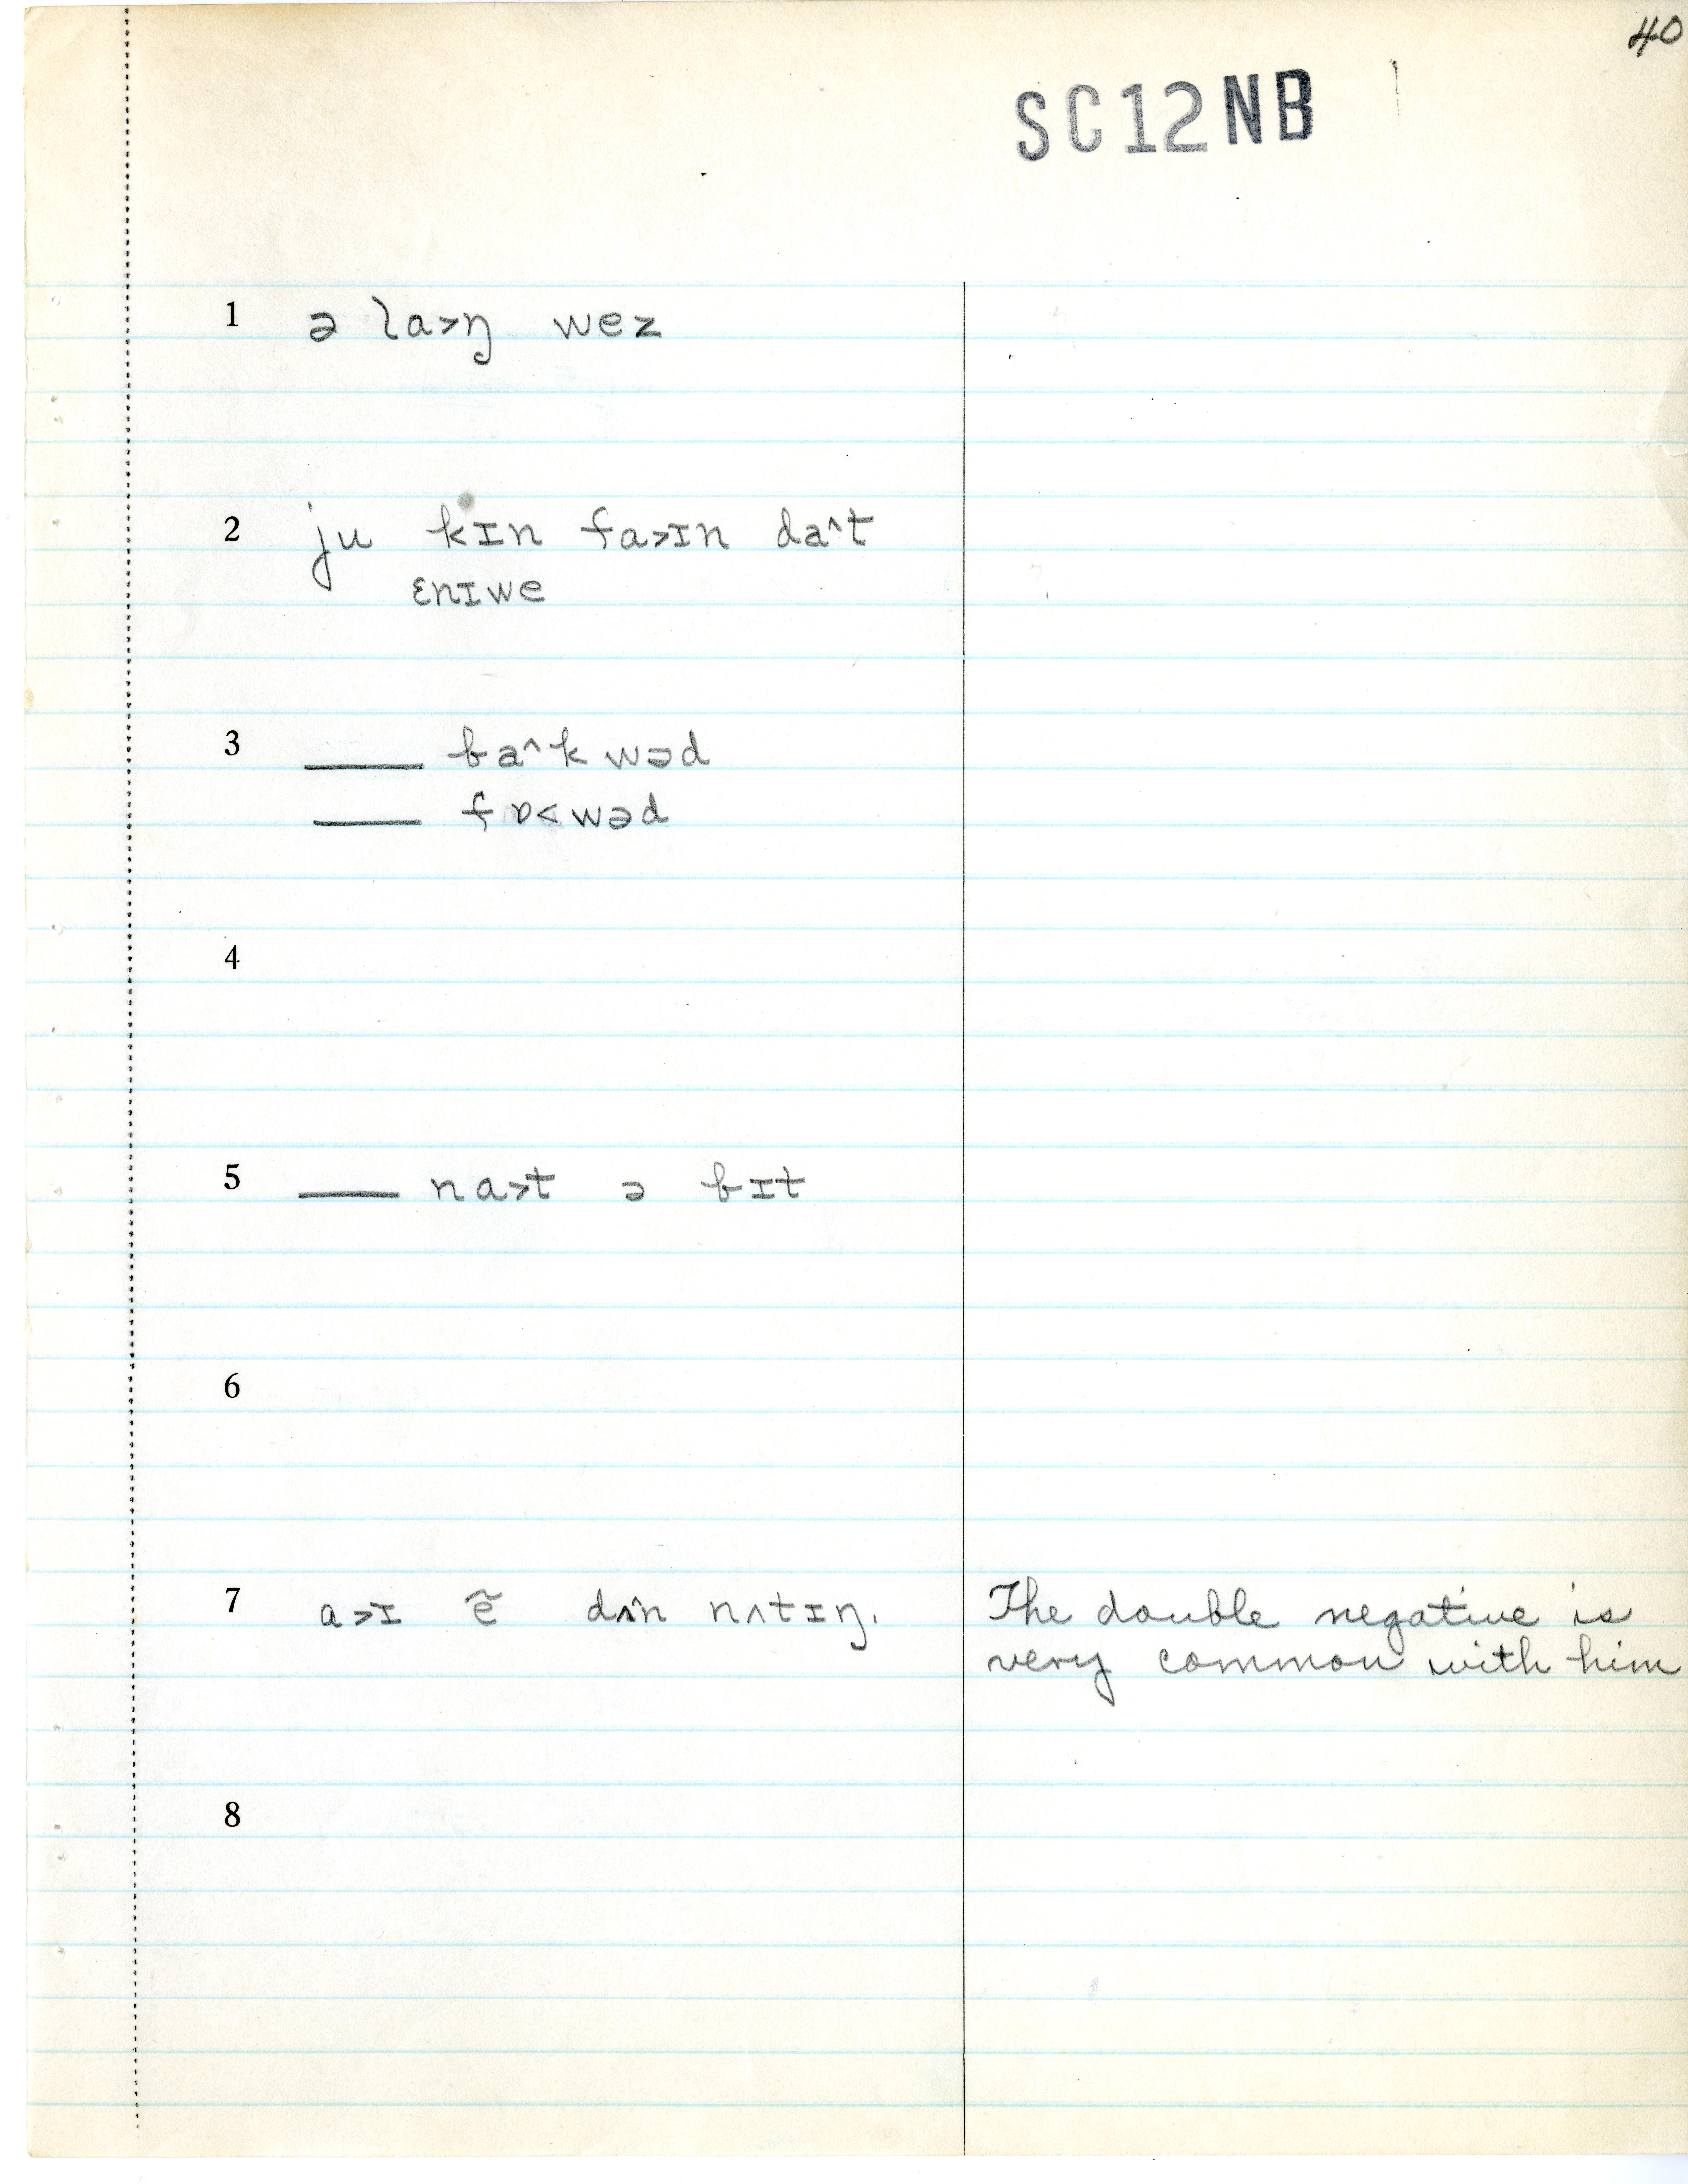 40
SC12NB
1 ə la˃ŋ wez
2 ju kɪn fa˃ɪn da^t
ɛnɪwe
3 ____ ba^kwəd
____ fɒ˂wəd
4
5 ____ na˃t ə bɪt
6
7 a˃ɪ ẽ dʌ^n nʌtɪŋ. The double negative is
very common with him
8